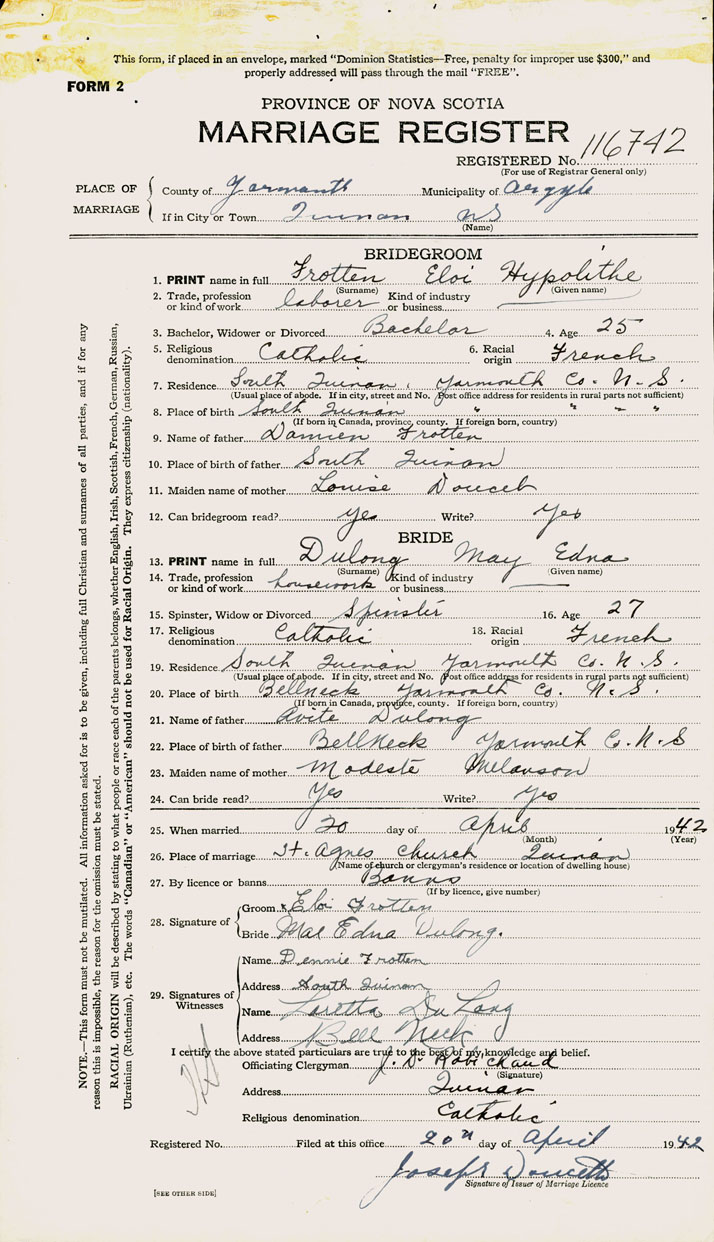 This form, if placed in an envelope, marked “Dominion Statistics—Free, penalty for improper use $300,” and
properly addressed will pass through the mail “FREE”.
FORM 2
PROVINCE OF NOVA SCOTIA
MARRIAGE REGISTER
REGISTERED No. 116742
(For use of Registrar General only)
PLACE OF MARRIAGE
County of Yarmouth Municipality of Argyle
If in City or Town Quinan NS
(Name)
BRIDEGROOM
1. PRINT name in full Frotten Eloi Hypolithe
(Surname) (Given name)
2. Trade, profession or kind of work laborer Kind of industry or business
3. Bachelor, Widower or Divorced Bachelor 4. Age 25
5. Religious denomination Catholic 6. Racial origin French
7. Residence South Quinan, Yarmouth Co. N.S.
(Usual place of abode. If in city, street and No. Post office address for residents in rural parts not sufficient)
8. Place of birth South Quinan " " " "
(If born in Canada, province, county. If foreign born, country)
9. Name of father Damien Frotten
10. Place of birth of father South Quinan
11. Maiden name of mother Louise Doucet
12. Can bridegroom read? yes Write? Yes
BRIDE
13. PRINT name in full Dulong May Edna
(Surname) (Given name)
14. Trade, profession or kind of work housework Kind of industry or business
15. Spinster, Widow or Divorced Spinster 16. Age 27
17. Religious denomination Catholic 18. Racial origin French
19. Residence South Quinan Yarmouth Co. N.S.
(Usual place of abode. If in city, street and No. Post office address for residents in rural parts not sufficient)
20. Place of birth Bellneck Yarmouth Co. N.S.
(If born in Canada, province, county. If foreign born, country)
21. Name of father Avite Dulong
22. Place of birth of father BellNeck Yarmouth C.N.S
23. Maiden name of mother Modeste Melanson
24. Can bride read? Yes Write? Yes
25. When married 20 day of April 1942
(Month) (Year)
26. Place of marriage St. Agnes Church Quinan
(Name of church or clergyman's residence or location of dwelling house)
27. By licence or banns Banns
(If by licence, give number)
28. Signature of
Groom x Eloi Frotten
Bride Mae Edna Dulong.
29. Signatures of Witnesses
Name Dennie Frotten
Address South Quinan
Name Loretta DuLong
Address Bell Neck
I certify the above stated particulars are true to the best of my knowledge and belief.
Officiating Clergyman J. D. Robichaud
(Signature)
Address Quinan
Religious denomination Catholic
Registered No. Filed at this office 20th day of April 1942
Joseph Doucette
Signature of Issuer of Marriage Licence
[SEE OTHER SIDE]
NOTE.—This form must not be mutilated. All information asked for is to be given, including full Christian and surnames of all parties, and if for any
reason this is impossible, the reason for the omission must be stated.
RACIAL ORIGIN will be described by stating to what people or race each of the parents belongs, whether English, Irish, Scottish, French, German, Russian,
Ukrainian (Ruthenian), etc. The words “Canadian” or “American” should not be used for Racial Origin. They express citizenship (nationality).